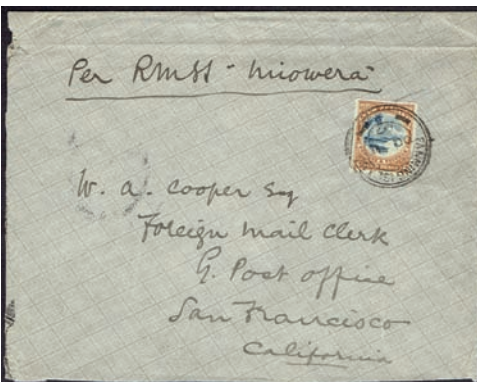 Per RMSS "Miowera"
W. A. Cooper Esq
Foreign Mail Clerk
G. Post Office
San Francisco
California